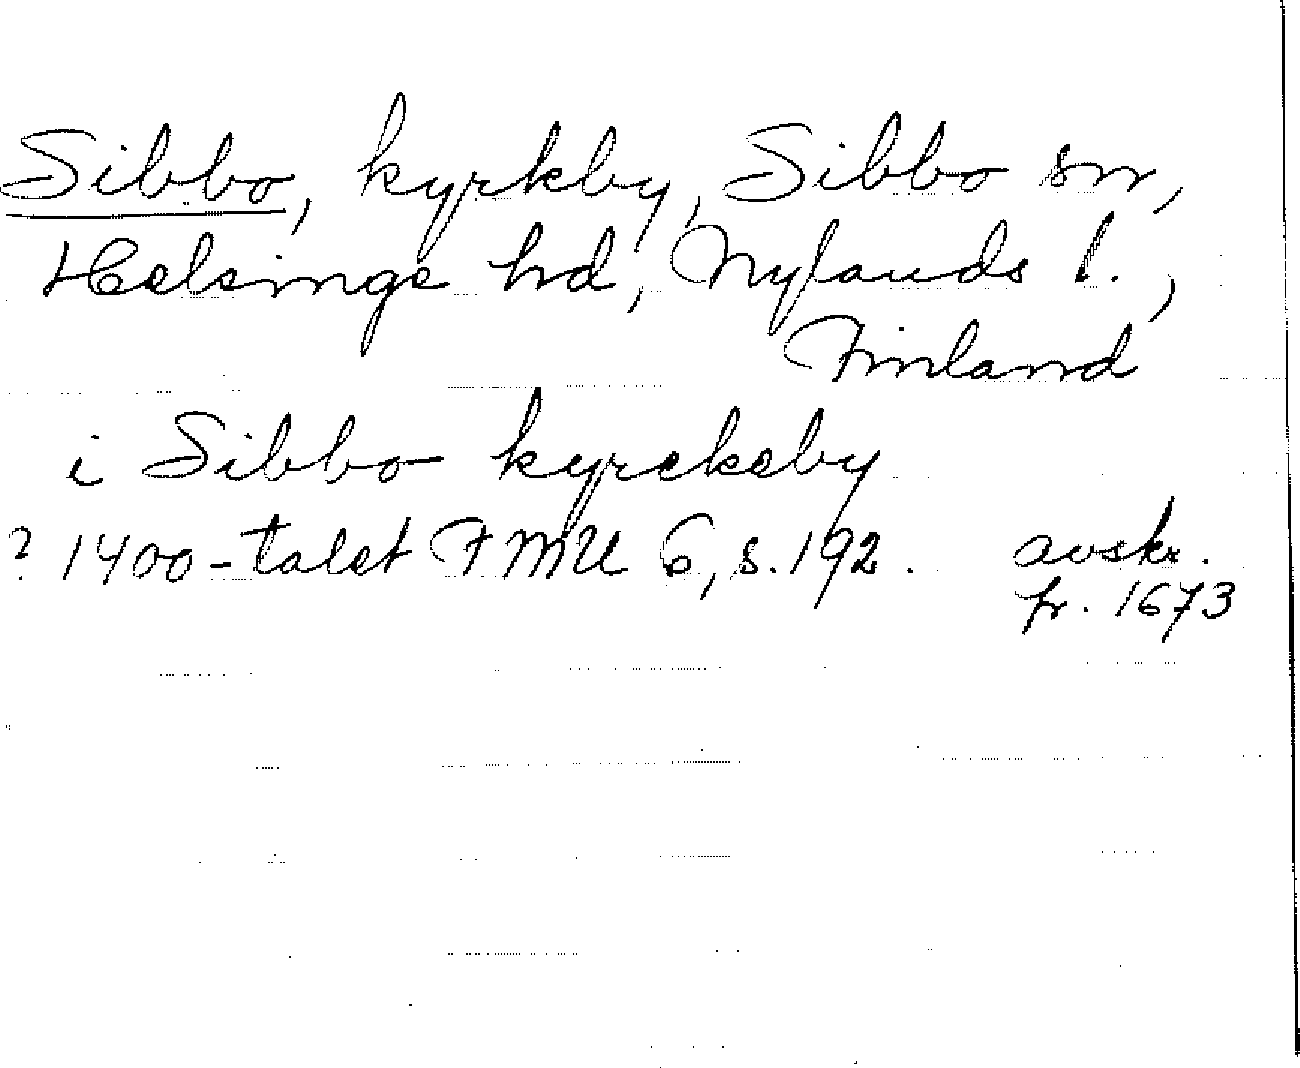 Sibbo, kyrkby, Sibbo sn,
Helsinge hd, Nylands l.,
Finland
i Sibbo kyrckeby
? 1400-talet FMU 6, s. 192. avskr.
fr. 1673